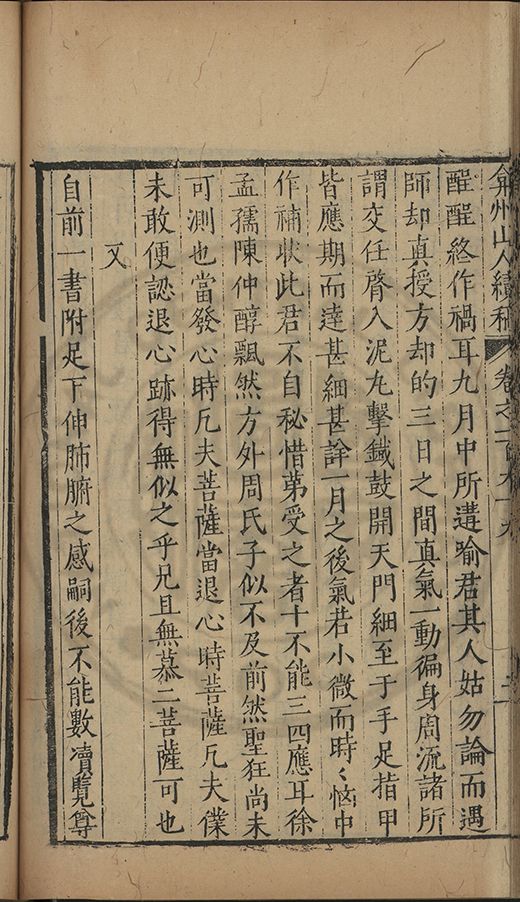 弇州山人續稿 卷之一百九十九
醒醒終作禍耳九月中所遘喻君其人姑勿論而遇
師却真授方却的三日之間真氣一動徧身周流諸所
謂交任脊入泥丸擊鐵鼓開天門細至于手足指甲
皆應期而達甚細甚詮一月之後氣若小微而時〻惱中
作補狀此君不自秘惜苐受之者十不能三四應耳徐
孟孺陳仲醇飄然方外周氏子似不及前然聖狂尚未
可測也當發心時凢夫菩薩當退心時菩薩凢夫僕
未敢便認退心跡得無似之乎兄且無慕二菩薩可也
又
自前一書附足下伸肺腑之感嗣後不能數瀆覽尊